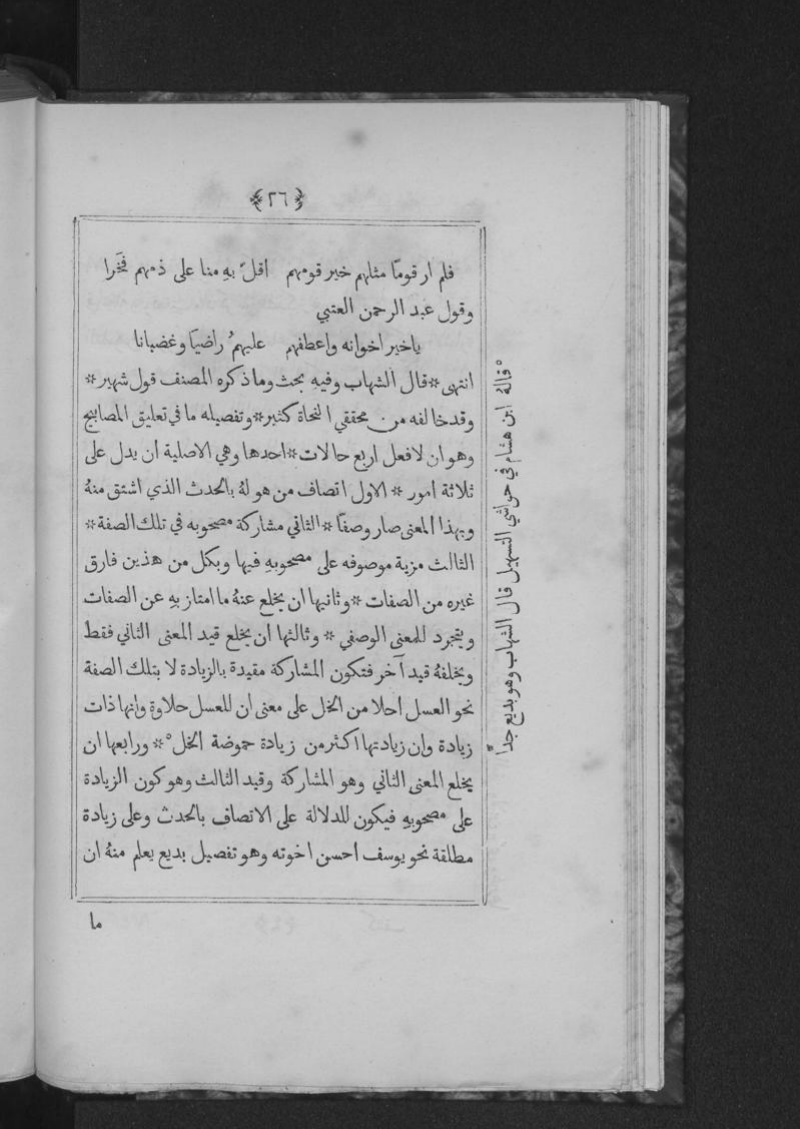 ﴿٢٦﴾
فلم ار قومًا مثلهم خير قومهم اقلّ بهِ منا على ذمهم فَخْرا
وقول عبد الرحمن العتبي
ياخير اخوانه واعطفهم عليهمُ راضيًا وغضبانا
انتهى * قال الشهاب وفيهِ بحث وما ذكره المصنف قول شهير *
وقد خالفه من محققي النحاة كثير * وتفصيله ما في تعليق المصابيح
وهو ان لافعل اربع حالات * احدها وهي الاصلية ان يدل على
ثلاثة امور * الاول اتصاف من هو لهُ بالحدث الذي اشتق منهُ
وبهذا المعنى صار وصفًا * الثاني مشاركة مصحوبه في تلك الصفة *
الثالث مزية موصوفه على مصحوبهِ فيها وبكل من هذين فارق
غيره من الصفات * وثانيها ان يخلع عنهُ ما امتاز بهِ عن الصفات
ويتجرد للمعنى الوصفي * وثالثها ان يخلع قيد المعنى الثاني فقط
ويخلفهُ قيد آخر فتكون المشاركة مقيدة بالزيادة لا بتلك الصفة
نحو العسل احلا من الخل على معنى ان للعسل حلاوة وانها ذات
زيادة وان زيادتها اكثر من زيادة حموضة الخل ْ * ورابعها ان
يخلع المعنى الثاني وهو المشاركة وقيد الثالث وهو كون الزيادة
على مصحوبهِ فيكون للدلالة على الاتصاف بالحدث وعلى زيادة
مطلقة نحو يوسف احسن اخوته وهو تفصيل بديع يعلم منهُ ان
ما
ْ قالهُ ابن هشام في حواشي التسهيل قال الشهاب وهو بديع جدًّا